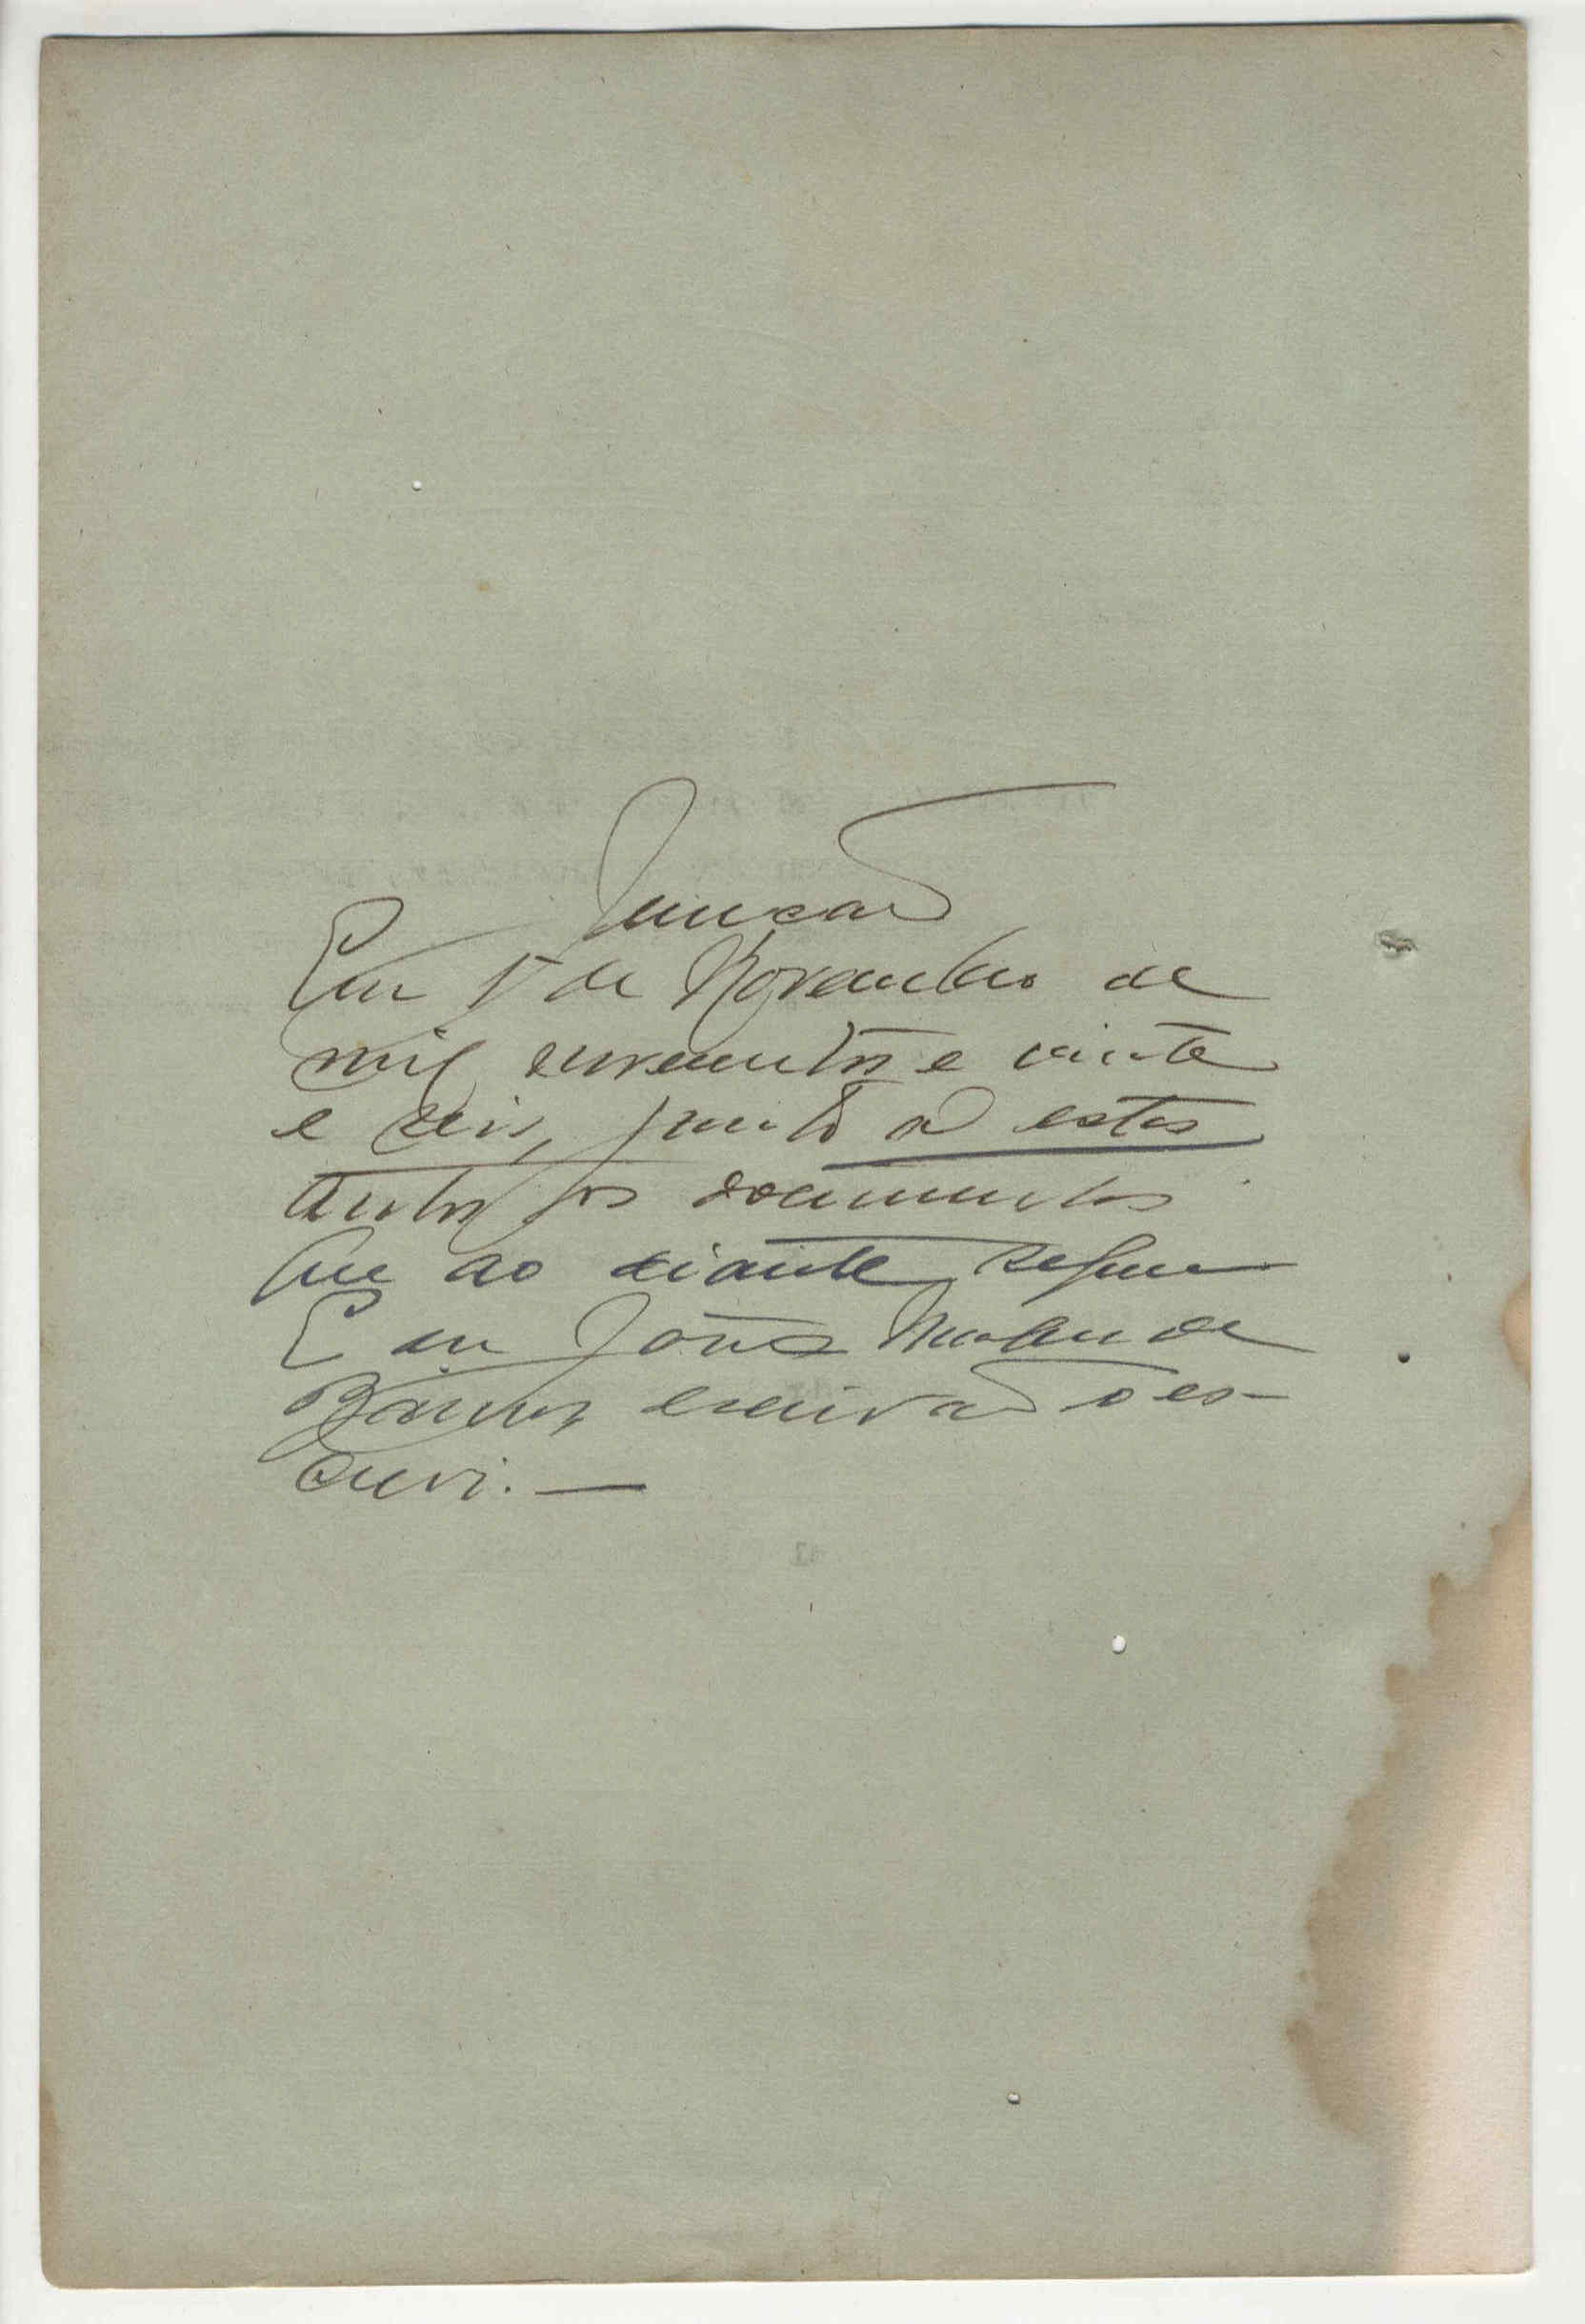 Junção
Em 5 de Novembro de
mil novecentos e vinte
e seis, junto a estes
autos os documentos
que ao diante seguem
E eu João de
Barros escrivão o es-
crevi. —